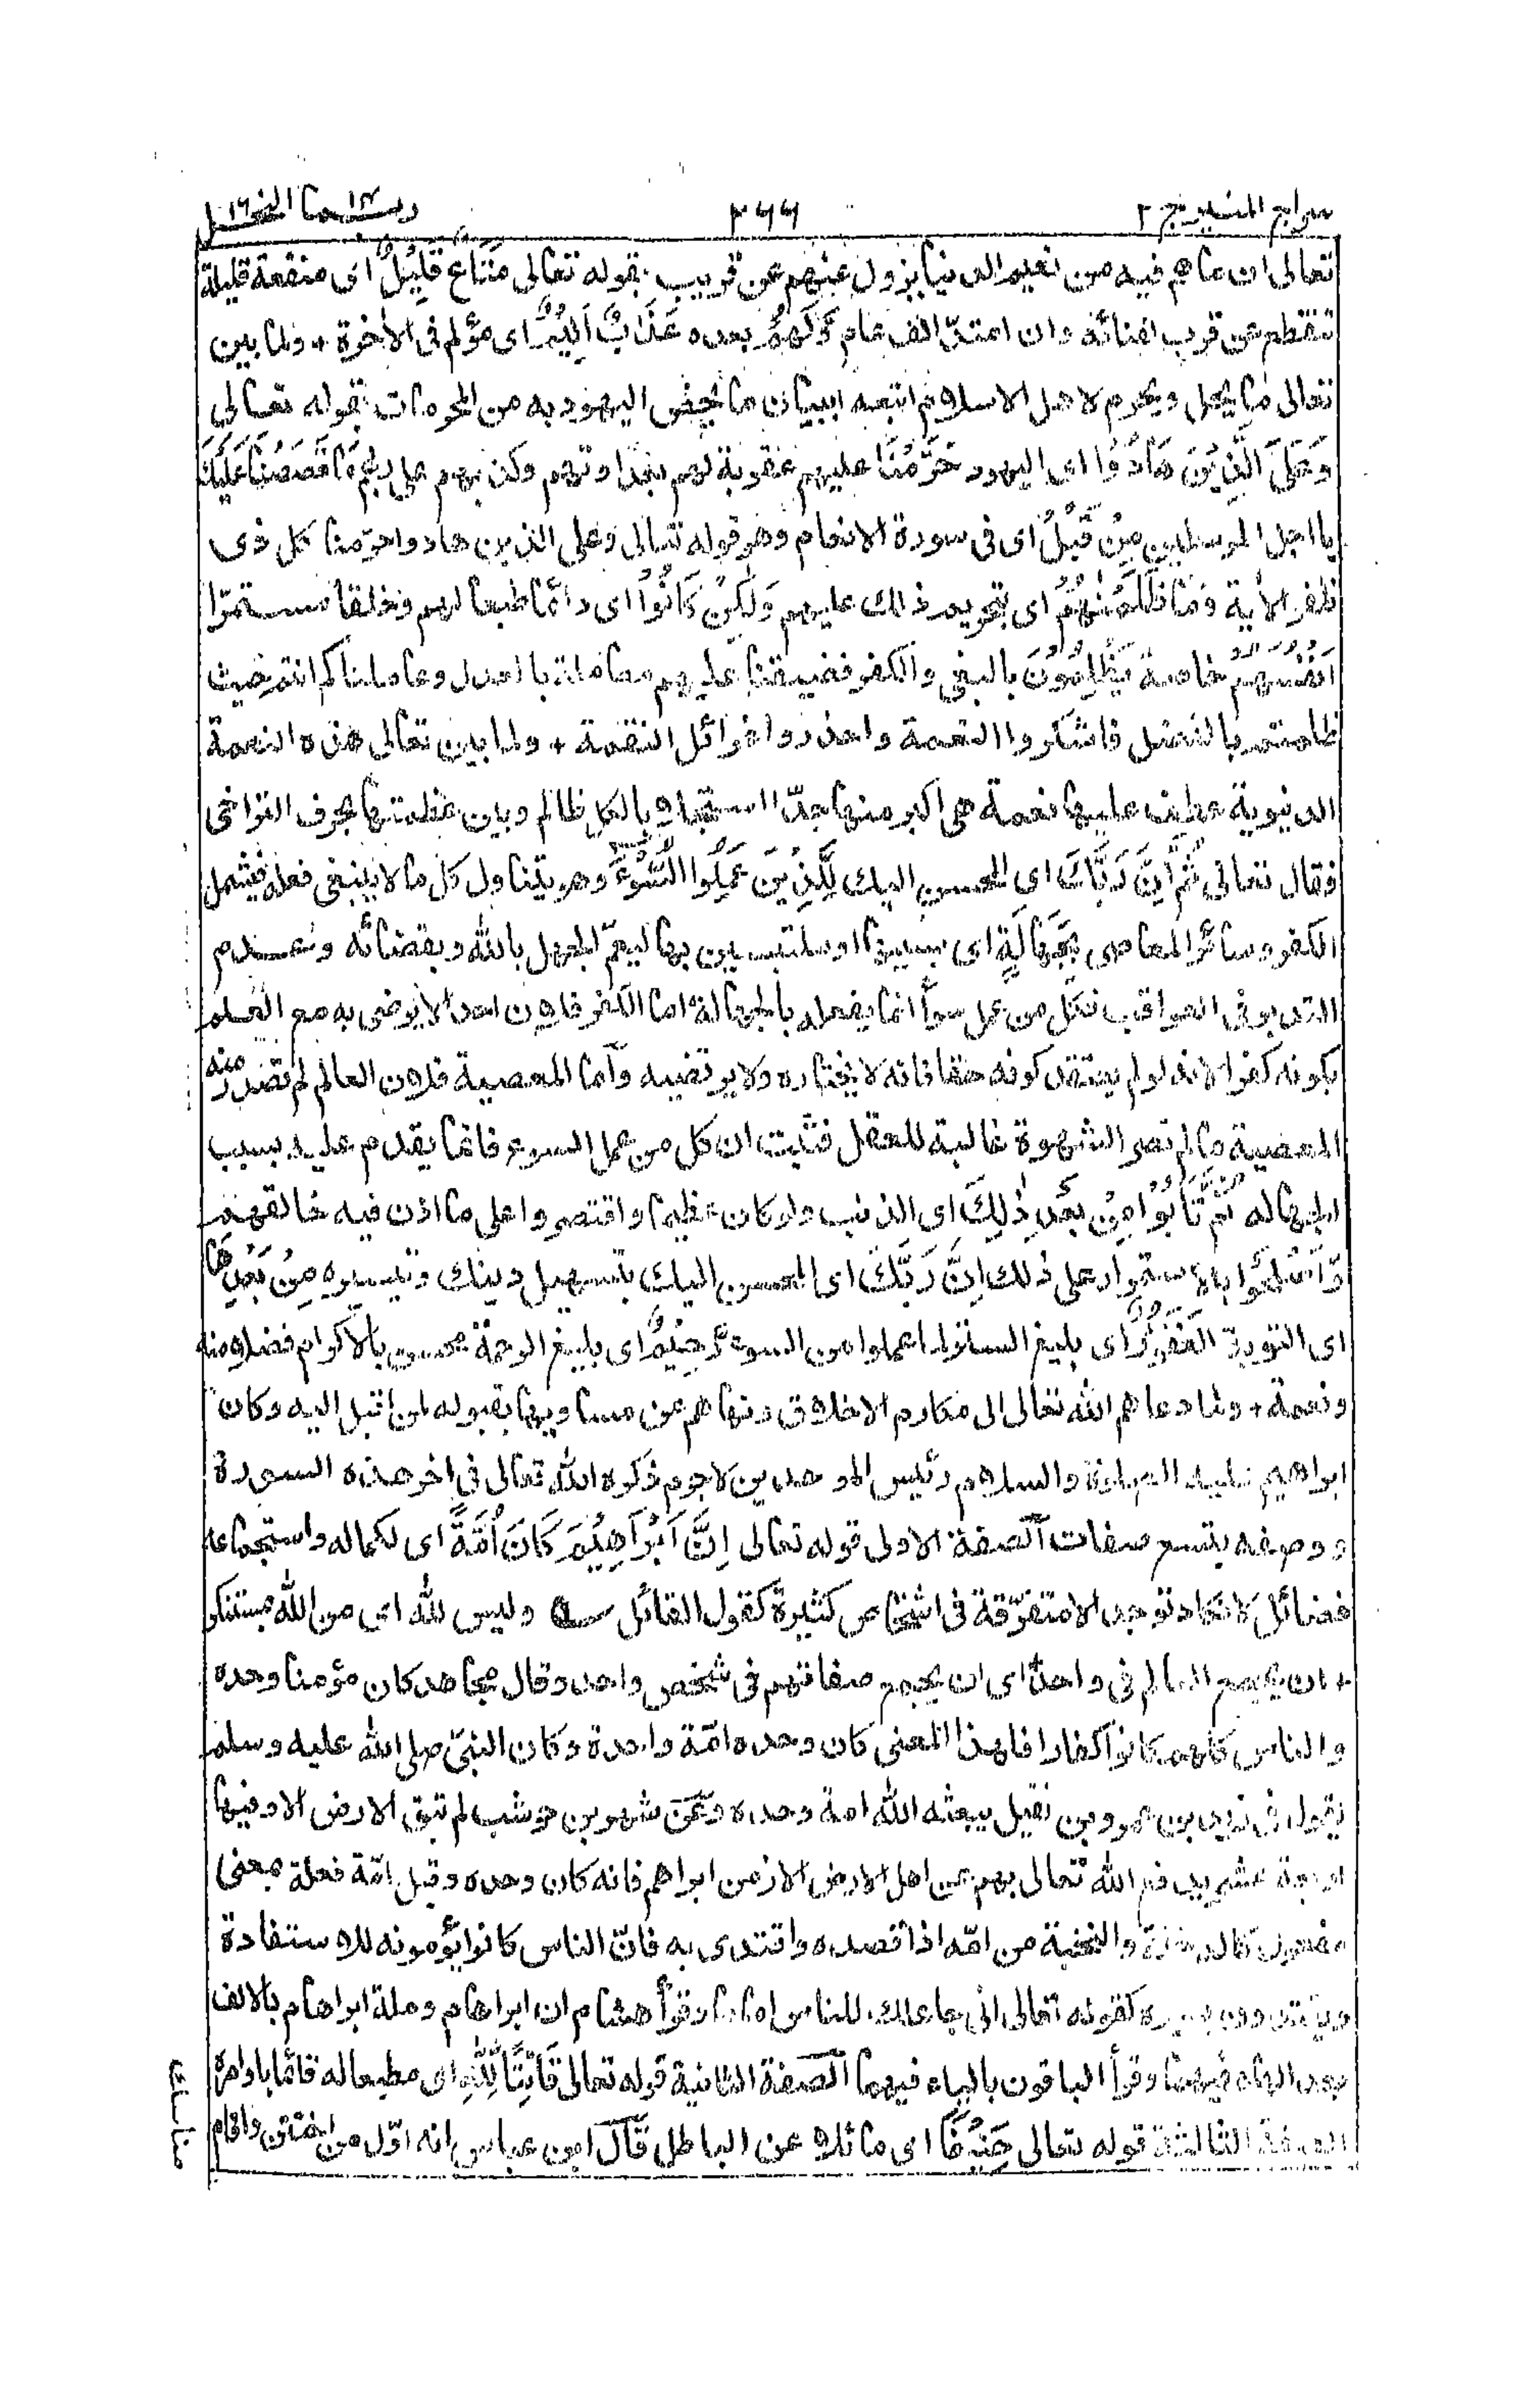 سراج المنير ج ٢
٢٦٦
ربما ١٤ النحل ١٦
تعالى ان ما هم فيه من نعيم الدنيا يزول عنهم عن قريب بقوله تعالى مَتَاعٌ قَلِيْلٌ اى منفعة قليلة
تنقطع عن قرب لفنائه وان امتدّ الف عام وَّلَهُمْ بعده عَذَابٌ اَلِيْمٌ اى مؤلم فى الأخرة + ولما بين
تعالى ما يحل ويحرم لاهل الاسلام اتبعه ببيان ما يخص اليهود به من المحرمات بقوله تعالى
وَعَلَى الَّذِيْنَ هَادُوْا اى اليهود حَرَّمْنَا عليهم عقوبة لهم بعداوتهم وكذبهم على ربهم مَا قَصَصْنَا عَلَيْكَ
يا اجل المرسلين مِنْ قَبْلُ اى فى سورة الانعام وهو قوله تعالى وعلى الذين هادوا حرّمنا كل ذى
ظفر الأية وَمَا ظَلَمْنٰهُمْ اى بتحريم ذلك عليهم وَلٰكِنْ كَانُوْٓا اى دائما طبعا لهم وخلقا مستمرّا
اَنْفُسَهُمْ خاصة يَظْلِمُوْنَ بالبغى والكفر فضيقنا عليهم معاملة بالعدل وعاملناكم انتم حيث
ظلمتم بالفضل فاشكروا النعمة واحذروا غوائل النقمة + ولما بين تعالى هذه النعمة
الدنيوية عطف عليها نعمة هى اكبر منها جدّا استجلابا لكل ظالم وبين عظمتها بحرف التراخى
فقال تعالى ثُمَّ اِنَّ رَبَّكَ اى المحسن اليك لِلَّذِيْنَ عَمِلُوا السُّوْٓءَ وهو يتناول كل ما لا ينبغى فعله فيشمل
الكفر وسائر المعاصى بِجَهَالَةٍ اى بسببها او ملتبسين بها ليعمّ الجهل بالله وبقضائه وعدم
التدبر فى العواقب فكل من عمل سوأ انما يفعله بالجهالة اما الكفر فلان احدا لا يرضى به مع العلم
بكونه كفرا لانه لو لم يعتقد كونه حقا فانه لا يختاره ولا يرتضيه وأما المعصية فلان العالم لم تصدر منه
المعصية ما لم تصر الشهوة غالبة للعقل فثبت ان كل من عمل السوء فانما يقدم عليه بسبب
الجهاله ثُمَّ تَابُوْا مِنْ بَعْدِ ذٰلِكَ اى الذنب ولو كان عظيما واقتصروا على ما اذن فيه خالقهم
وَاَصْلَحُوْٓا بالاستمرار على ذلك اِنَّ رَبَّكَ اى المحسن اليك بتسهيل دينك وتيسيره مِنْ بَعْدِهَا
اى التوبة لَغَفُوْرٌ اى بليغ الستر لما عملوا من السوء رَّحِيْمٌ اى بليغ الرحمة محسن بالاكرام فضلا منه
ونعمة + ولما دعاهم الله تعالى الى مكارم الاخلاق ونهاهم عن مساويها بقبوله لمن اقبل اليه وكان
ابراهيم عليه الصلوة والسلام رئيس الموحدين لا جرم ذكره الله تعالى فى اخر هذه السورة
ووصفه بتسع صفات الصفة الاولى قوله تعالى اِنَّ اِبْرَاهِيْمَ كَانَ اُمَّةً اى لكماله واستجماعه
فضائل لا تكاد توجد الا متفرّقة فى اشخاص كثيرة كقول القائل وليس لله اى من الله مستنكر
+ ان يجمع العالم فى واحد اى ان يجمع صفاتهم فى شخص واحد وقال مجاهد كان مؤمنا وحده
والناس كلهم كانوا كفارا فلهذا المعنى كان وحده امّة واحدة وكان النبىّ صلى الله عليه وسلم
يقول فى زيد بن عمرو بن نفيل يبعثه الله امة وحده وعن شهر بن حوشب لم تبق الارض الا وفيها
اربعة عشر يدفع الله تعالى بهم عن اهل الارض الا زمن ابراهم فانه كان وحده وقيل امّة فعلة بمعنى
مفعول كالرحلة والنخبة من امّه اذا قصده واقتدى به فانّ الناس كانوا يؤمونه للاستفادة
ويقتدون بسيره كقوله تعالى انى جاعلك للناس اماما وقرأ هشام ان ابراهام وملة ابراهام بالالف
بعد الهاء فيهما وقرأ الباقون بالياء فيهما الصفة الثانية قوله تعالى قَانِتًا لِّلّٰهِ اى مطيعا له قائما باوامره
الصفة الثالثة قوله تعالى حَنِيْفًا اى مائلا عن الباطل قال ابن عباس انه اوّل من اختتن واقام
مناسك